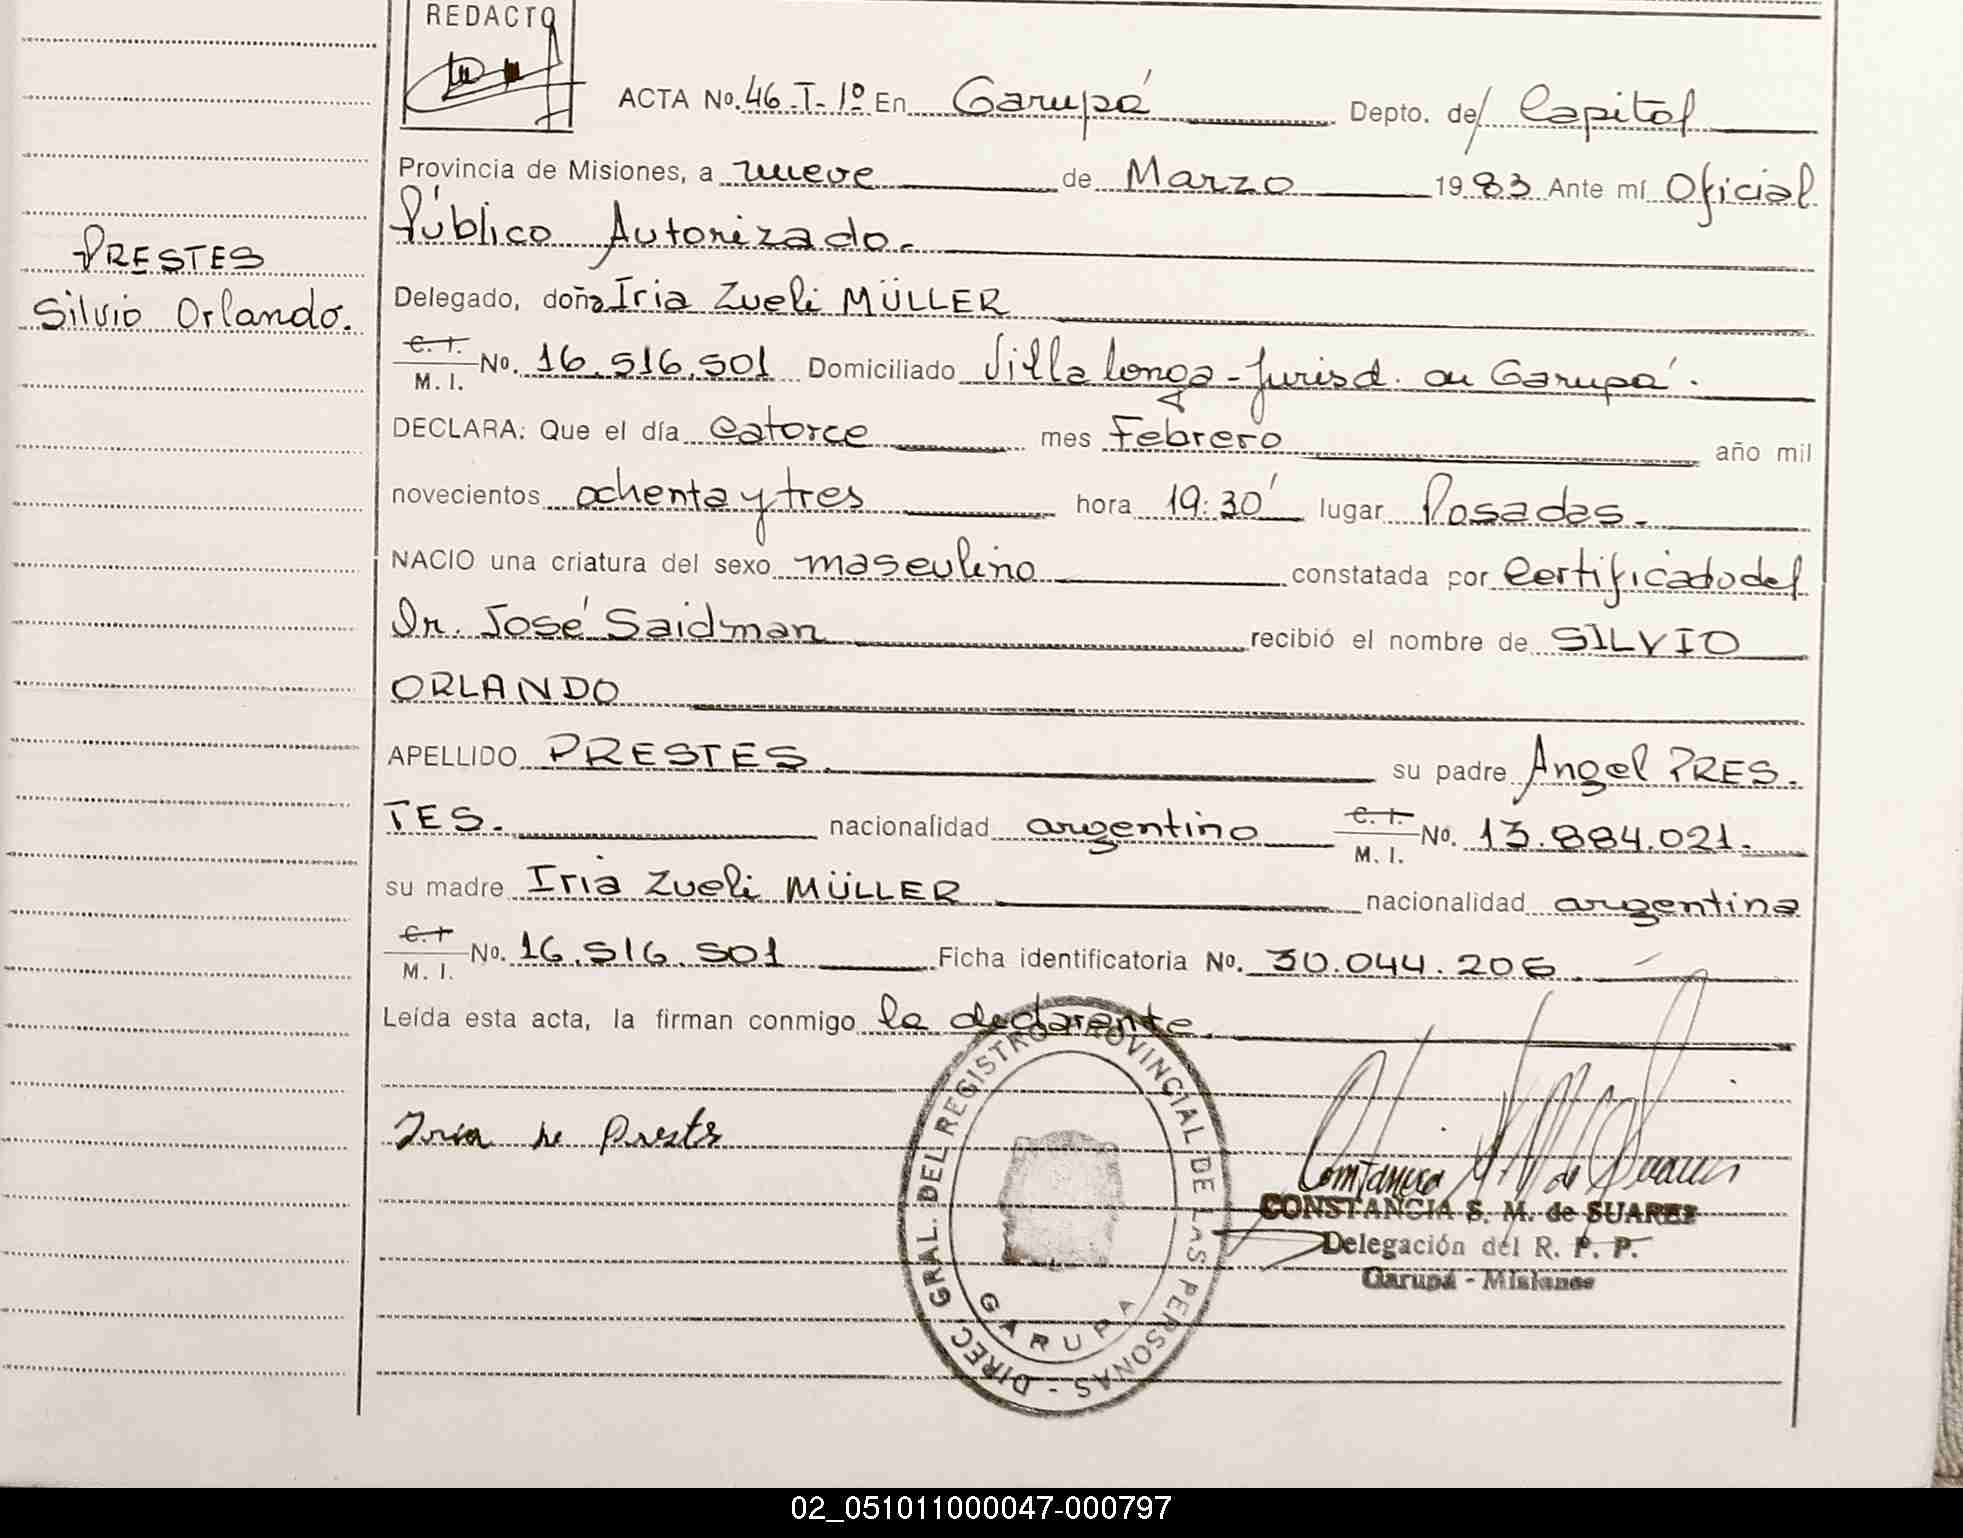 REDACTO
ACTA No. 46-T-1º En Garupá Depto. de/ Capital
Provincia de Misiones, a nueve de Marzo 1983 Ante mí Oficial
Público Autorizado.
PRESTES
Silvio Orlando.
Delegado, doña Iria Zueli MÜLLER
C. I.
M. I. No. 16.516.501 Domiciliado Villa longa - Jurisd. en Garupá.
DECLARA: Que el día catorce mes Febrero año mil
novecientos ochenta y tres hora 19:30' lugar Posadas.
NACIO una criatura del sexo masculino constatada por Certificado del
Dr. José Saidman recibió el nombre de SILVIO
ORLANDO
APELLIDO PRESTES su padre Angel PRES-
TES. nacionalidad argentino C. I. M. I. No. 13.884.021.
su madre Iria Zueli MÜLLER nacionalidad argentina
C. I.
M. I. No. 16.516.501 Ficha identificatoria No. 30.044.206
Leída esta acta, la firman conmigo la declarante.
Iria de Prestes
DIREC. GRAL. DEL REGISTRO PROVINCIAL DE LAS PERSONAS -
GARUPA
CONSTANCIA S. M. de SUAREZ
Delegación del R. P. P.
Garupá - Misiones
02_051011000047-000797